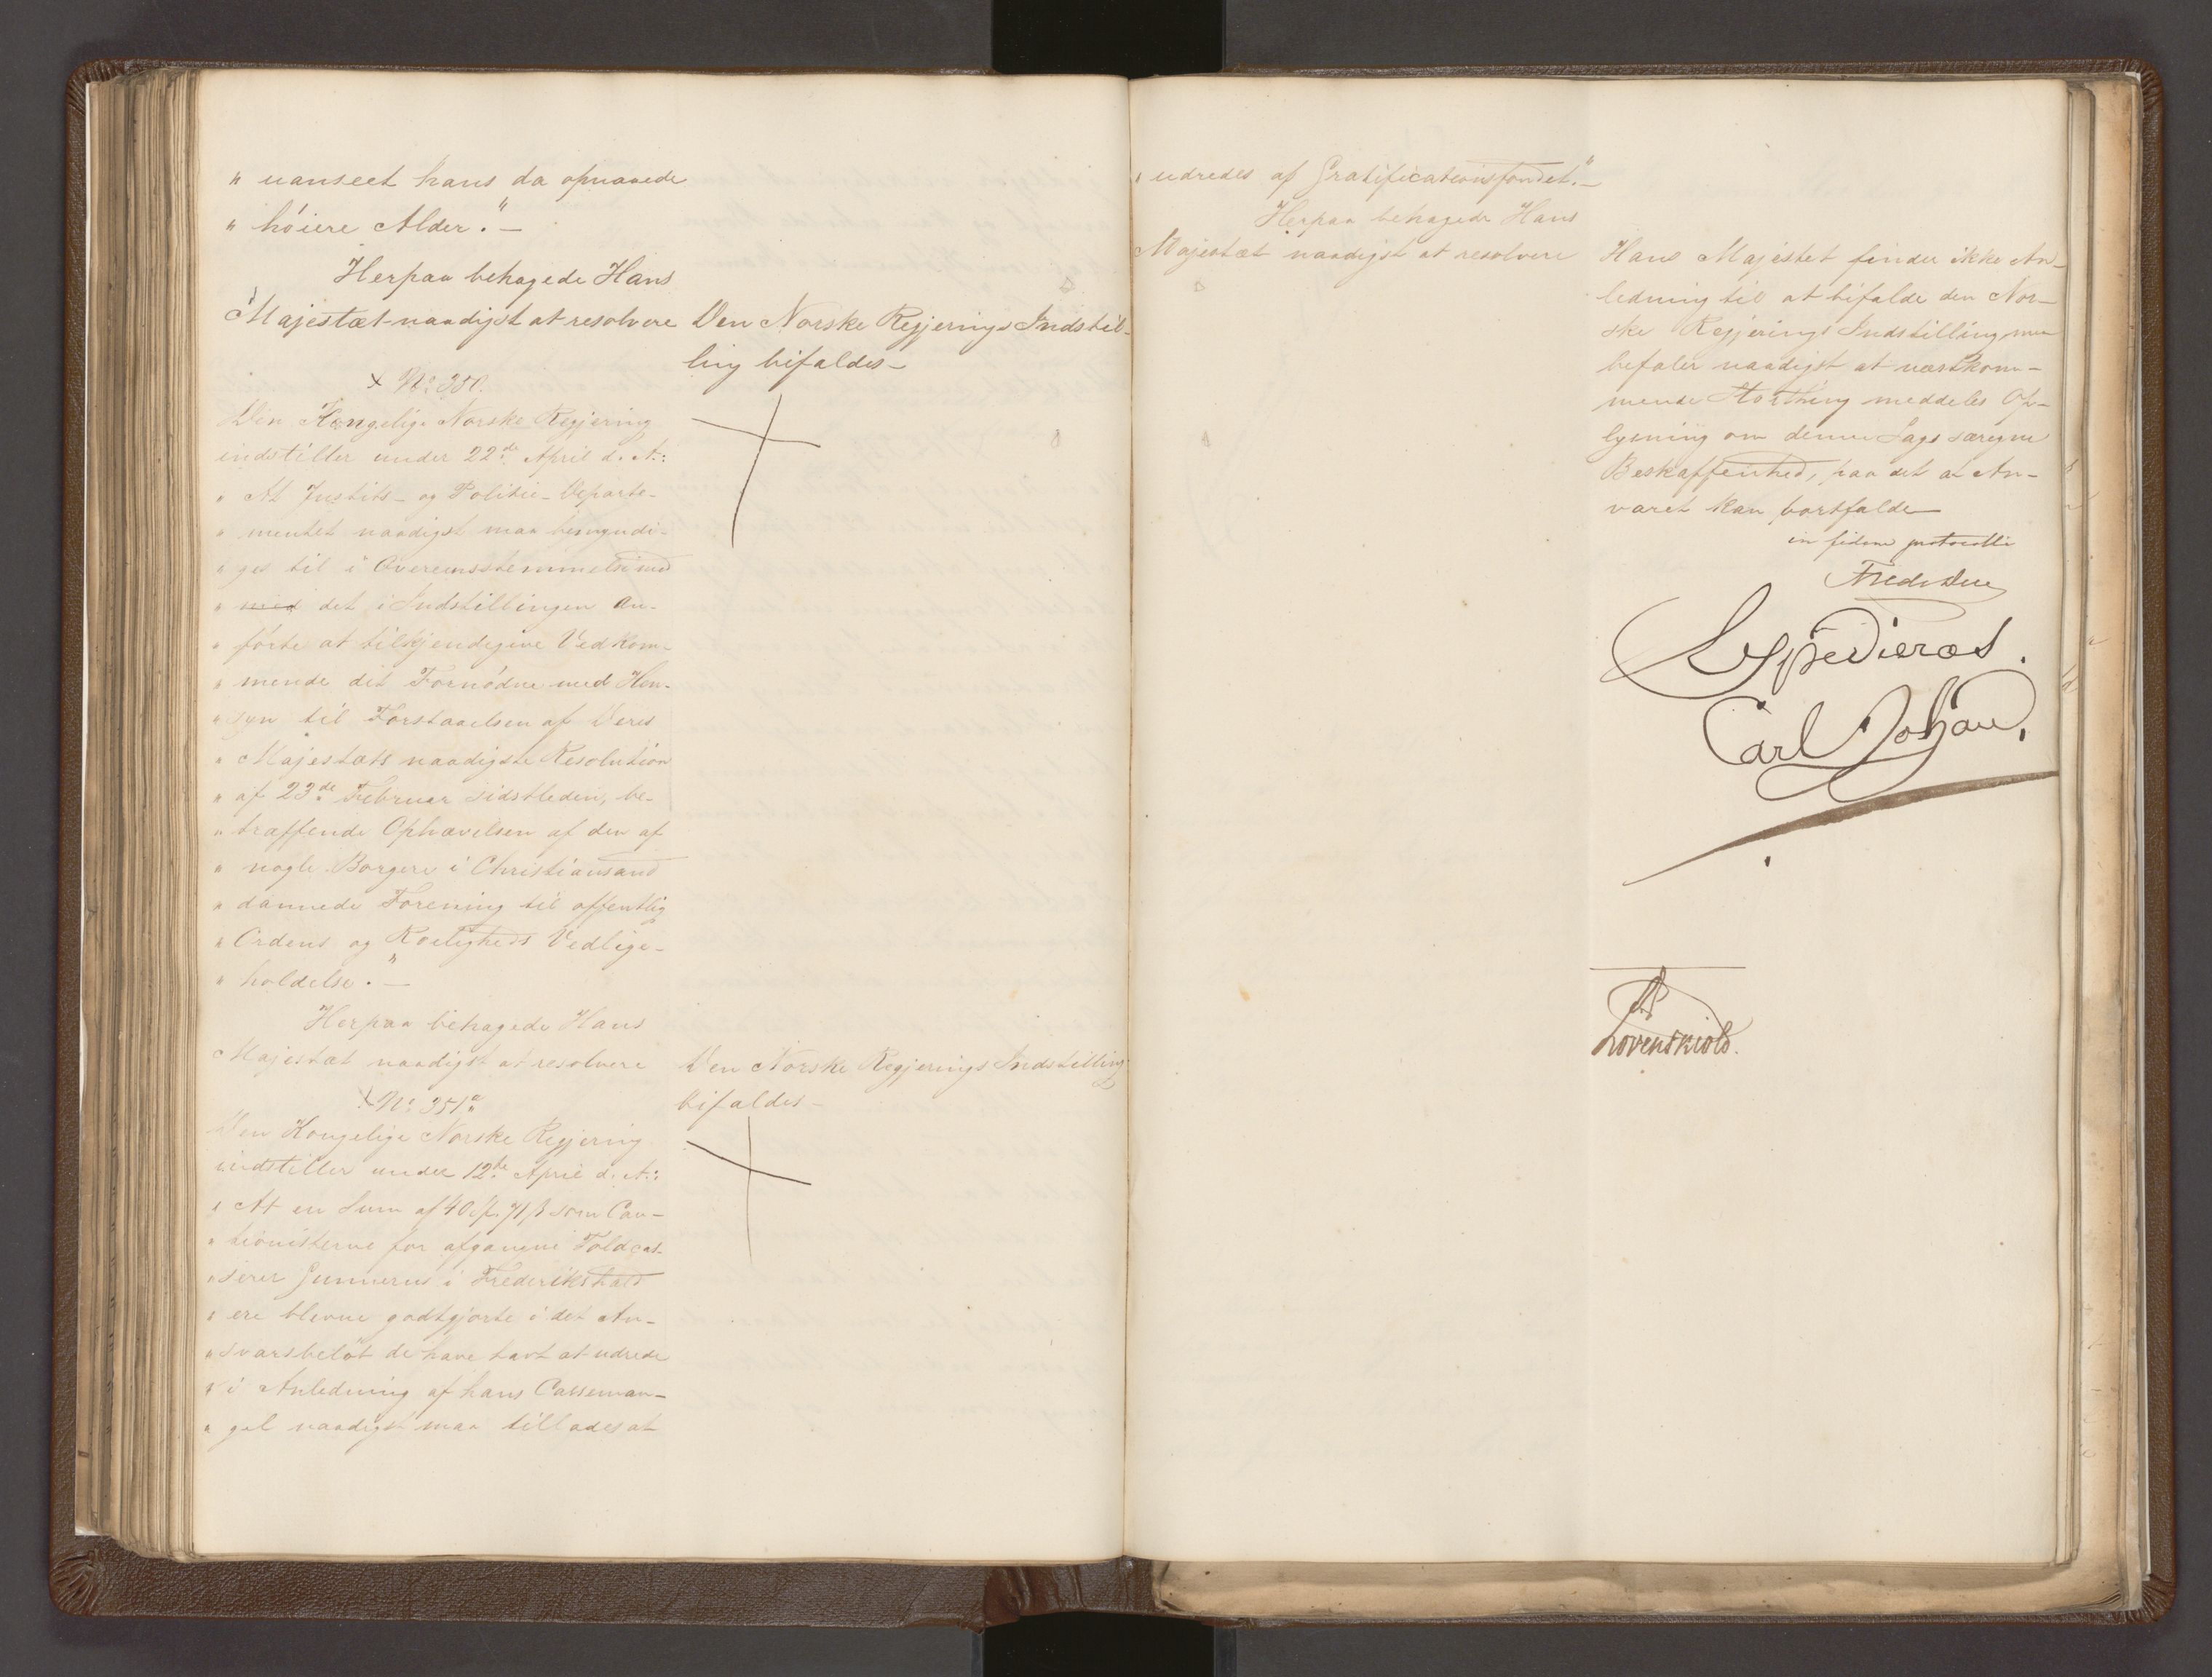 " uanseet hans da opnaaede
" höiere Alder." —
Herpaa behagede Hans
Majestæt naadigst at resolvere
Den Norske Regjerings Indstil-
ling bifaldes —
× No 350.
Den Kongelige Norske Regjering
indstiller under 22de April d. A.:
" At Justits- og Politie-Departe-
" mentet naadigst maa bemyndi-
" ges til i Overeensstemmelse med
" med det i Indstillingen an-
" förte at tilkjendegive Vedkom-
" mende det Fornödne med Hen-
" syn til Forstaaelsen af Deres
" Majestæts naadigste Resolution
" af 23de Februar sidstleden, be-
" træffende Ophævelsen af den af
" nogle Borgere i Christiansand
" dannede Forening til offentlig
" Ordens og Roeligheds Vedlige-
" holdelse." —
Herpaa behagede Hans
Majestæt naadigst at resolvere
Den Norske Regjerings Indstilling
bifaldes —
× No 351.
Den Kongelige Norske Regjering
indstiller under 12te April d. A.:
" At en Sum af 40 71 ß som Cau-
" tionisterne for afgangne Toldcas-
" serer Gunnerus i Frederikshald
" ere blevne godtgjorte i det An-
" svarsbelöb de have havt at udrede
" i Anledning af hans Casseman-
" gel naadigst maa tillades at
" udredes af Gratificationsfondet." —
Herpaa behagede Hans
Majestæt naadigst at resolvere
Hans Majestet finder ikke An-
ledning til at bifalde den Nor-
ske Regjerings Indstilling men
befaler naadigst at næstkom-
mende Storthing meddeles Op-
lysning om denne Sags særegne
Beskaffenhed, paa det at An-
varet kan bortfalde —
in fidem protocolli
Fredr Due
Expedieras.
Carl Johan.
Lövenskiold.